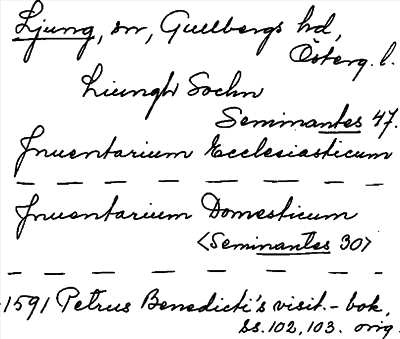 Ljung, sn, Gullbergs hd,
Österg. l.
Liungh Sochn
Seminantes 47.
Inventarium Ecclesiasticum
— — — — — — — —
Inventarium Domesticum
<Seminantes 30>
— — — — — — — —
1591 Petrus Benedicti's visit.-bok,
ss. 102, 103. orig.